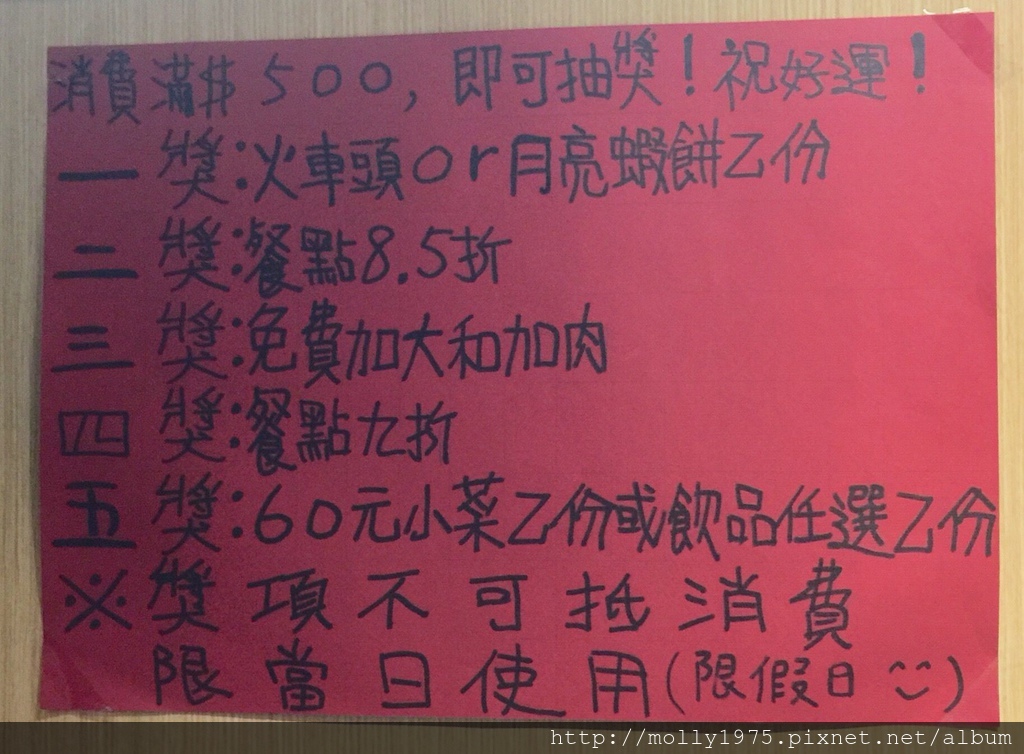 消費滿$500,即可抽獎!祝好運!
一獎:火車頭or月亮蝦餅乙份
二獎:餐點8.5折
三獎:免費加大和加肉
四獎:餐點九折
五獎:60元小菜乙份或飲品任選乙份
※獎項不可抵消費
限當日使用(限假日 ^^)
http://molly1975.pixnet.net/album